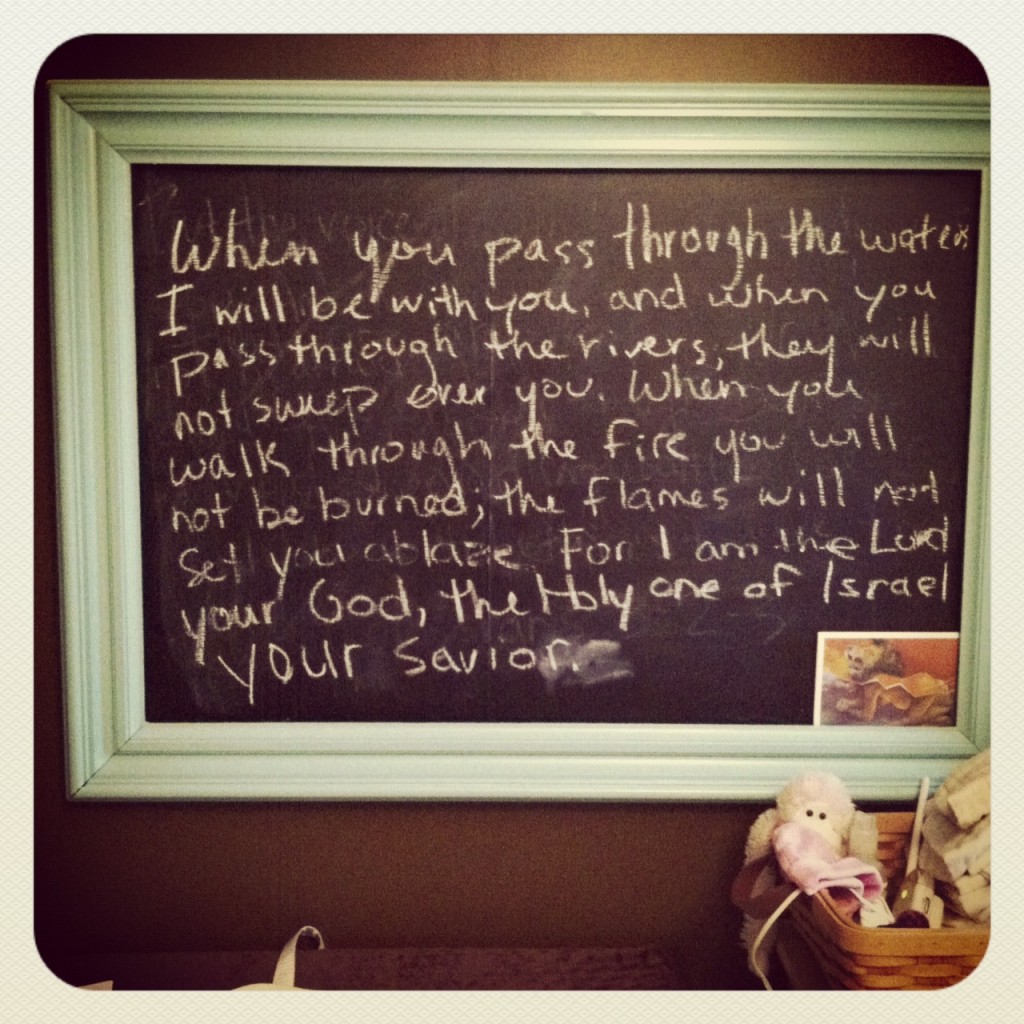 When you pass through the waters
I will be with you, and when you
pass through the rivers, they will
not sweep over you. When you
walk through the fire you will
not be burned; the flames will not
set you ablaze. For I am the Lord
your God, the Holy one of Israel
your Savior.